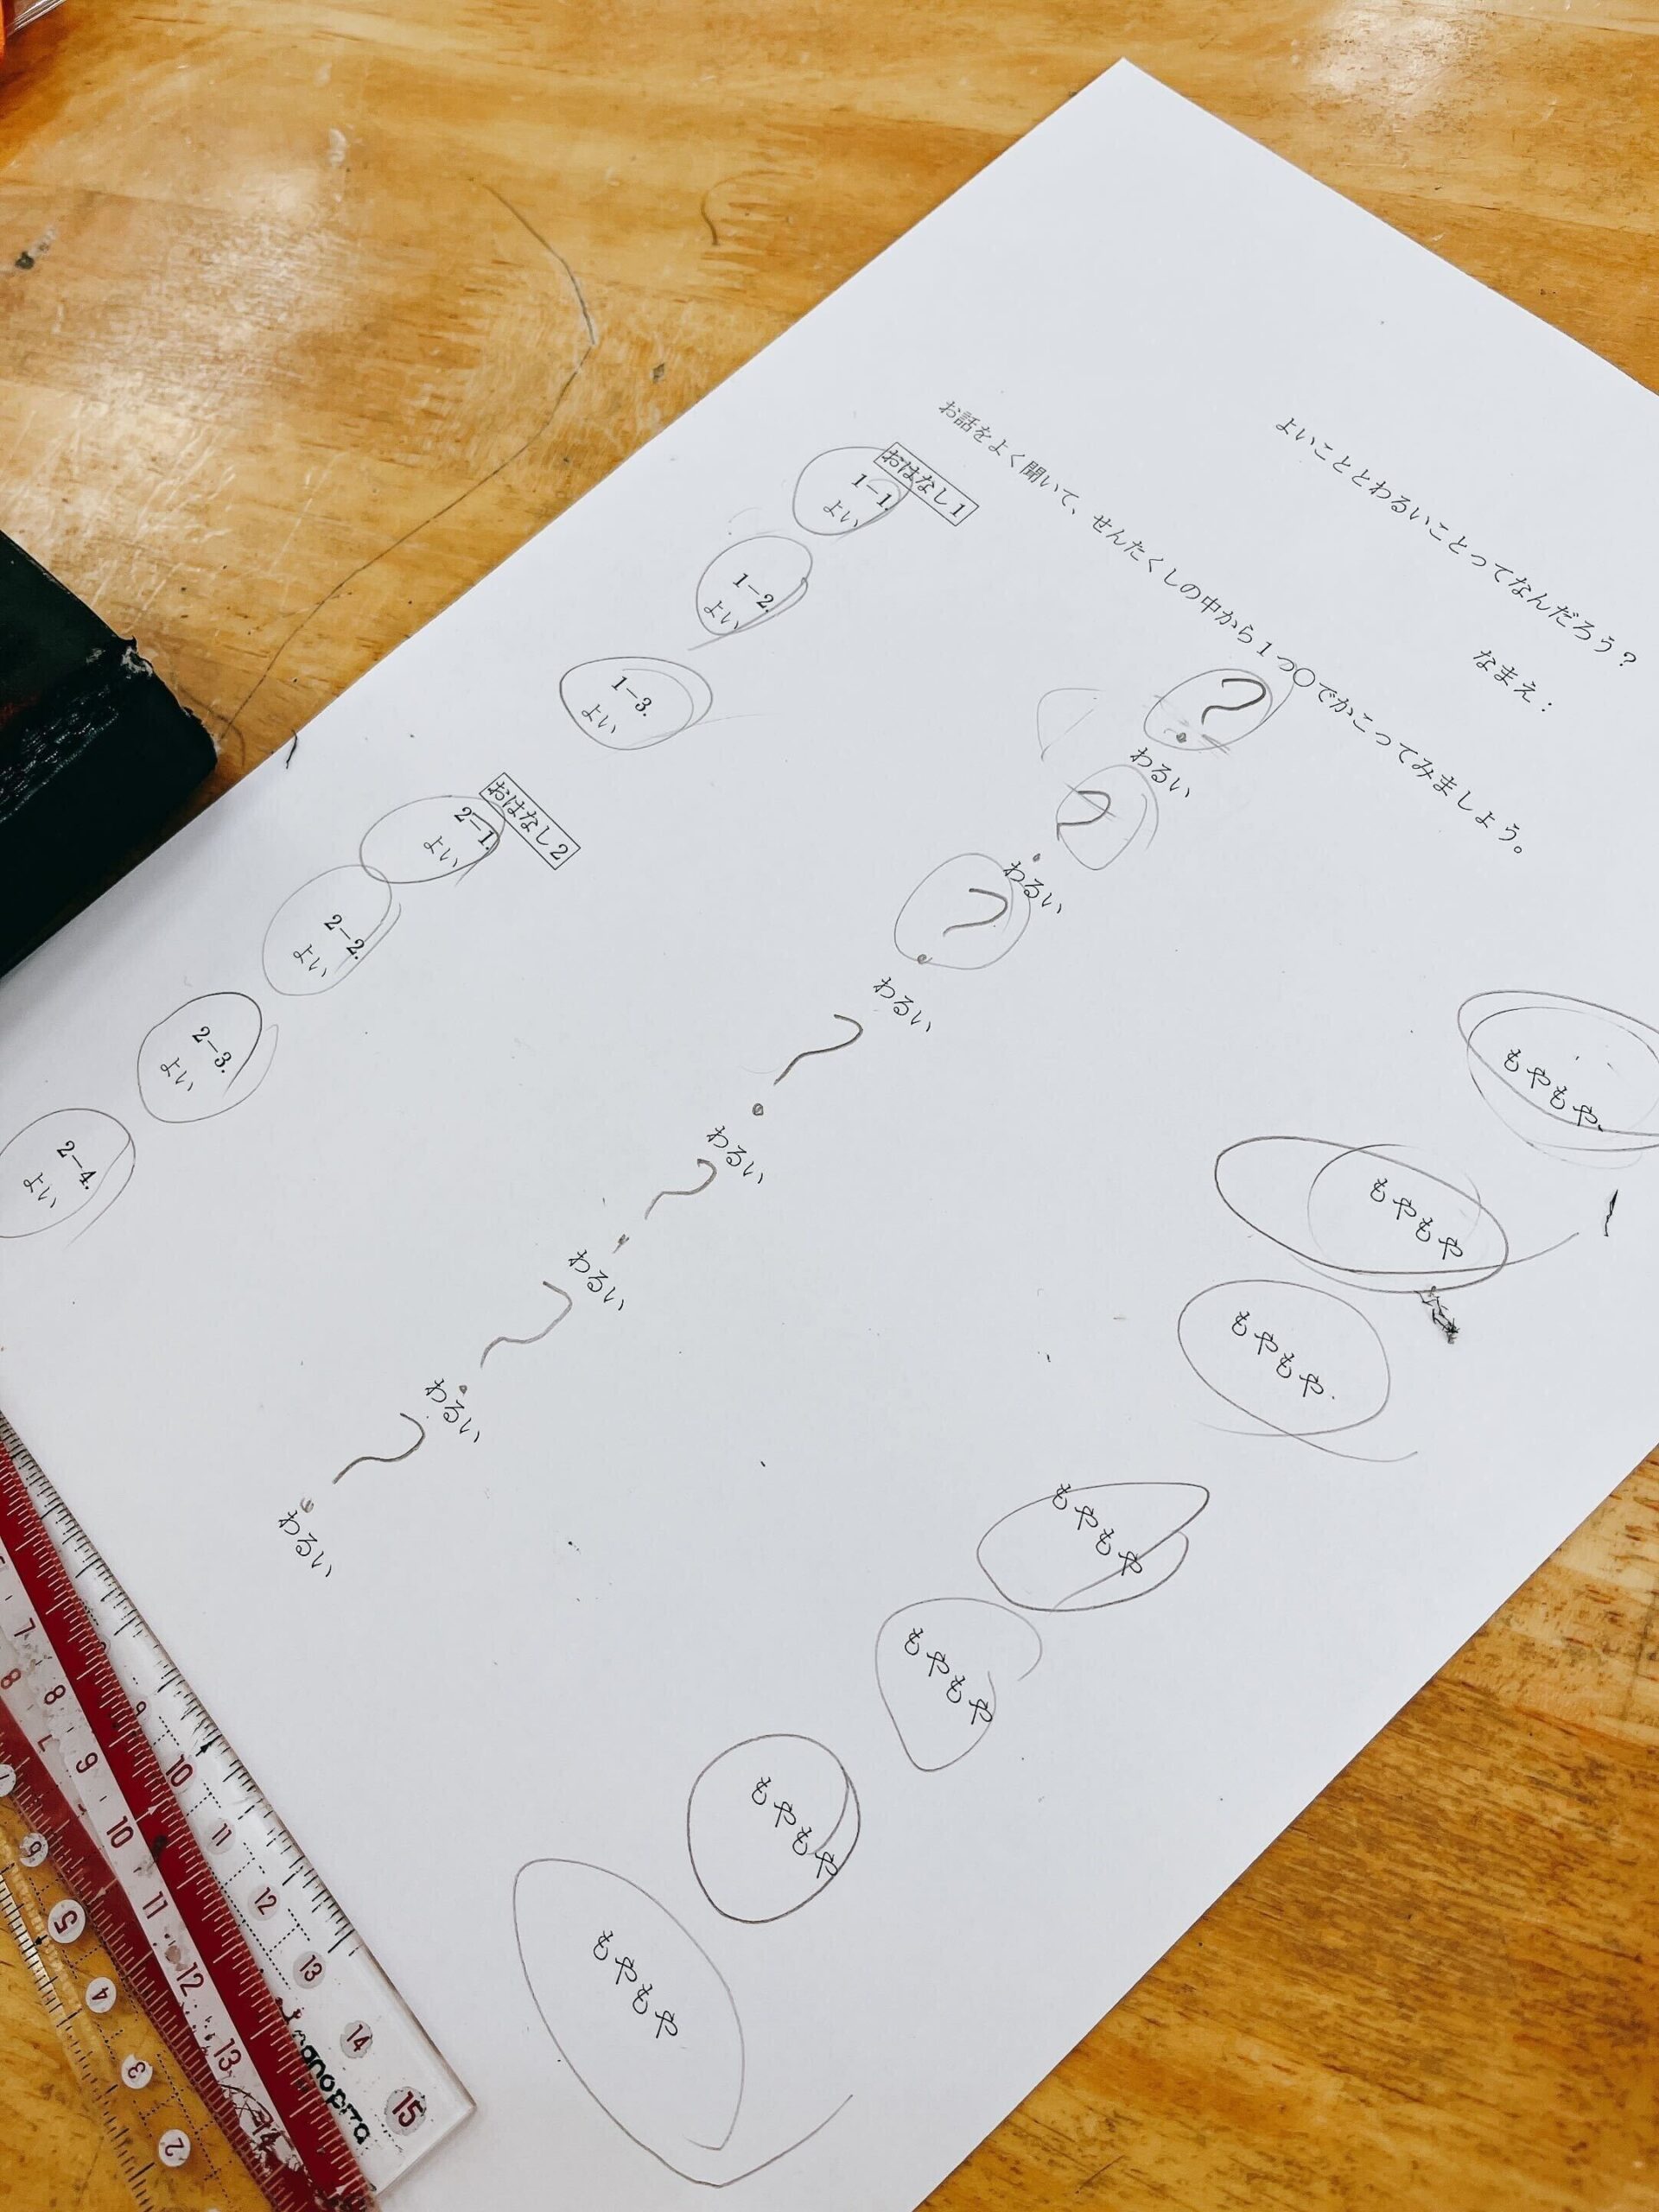 よいこととわるいことってなんだろう？
なまえ：
お話をよく聞いて、せんたくしの中から１つ〇でかこってみましょう。
おはなし1
1−1.
よい ? わるい もやもや
1−2.
よい ? わるい もやもや
1−3.
よい ? わるい もやもや
おはなし2
2−1.
よい ? わるい もやもや
2−2.
よい ? わるい もやもや
2−3.
よい ? わるい もやもや
2−4.
よい ? わるい もやもや
7 8 9 10 11 12 13 14
8 9 10 11 12 13 14 15
6 5 4 3 2